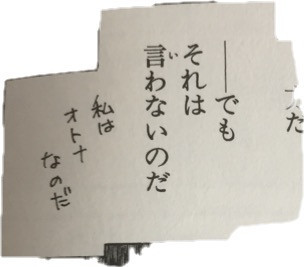 た
――でも
それは
言わないのだ
私は
オトナ
なのだ